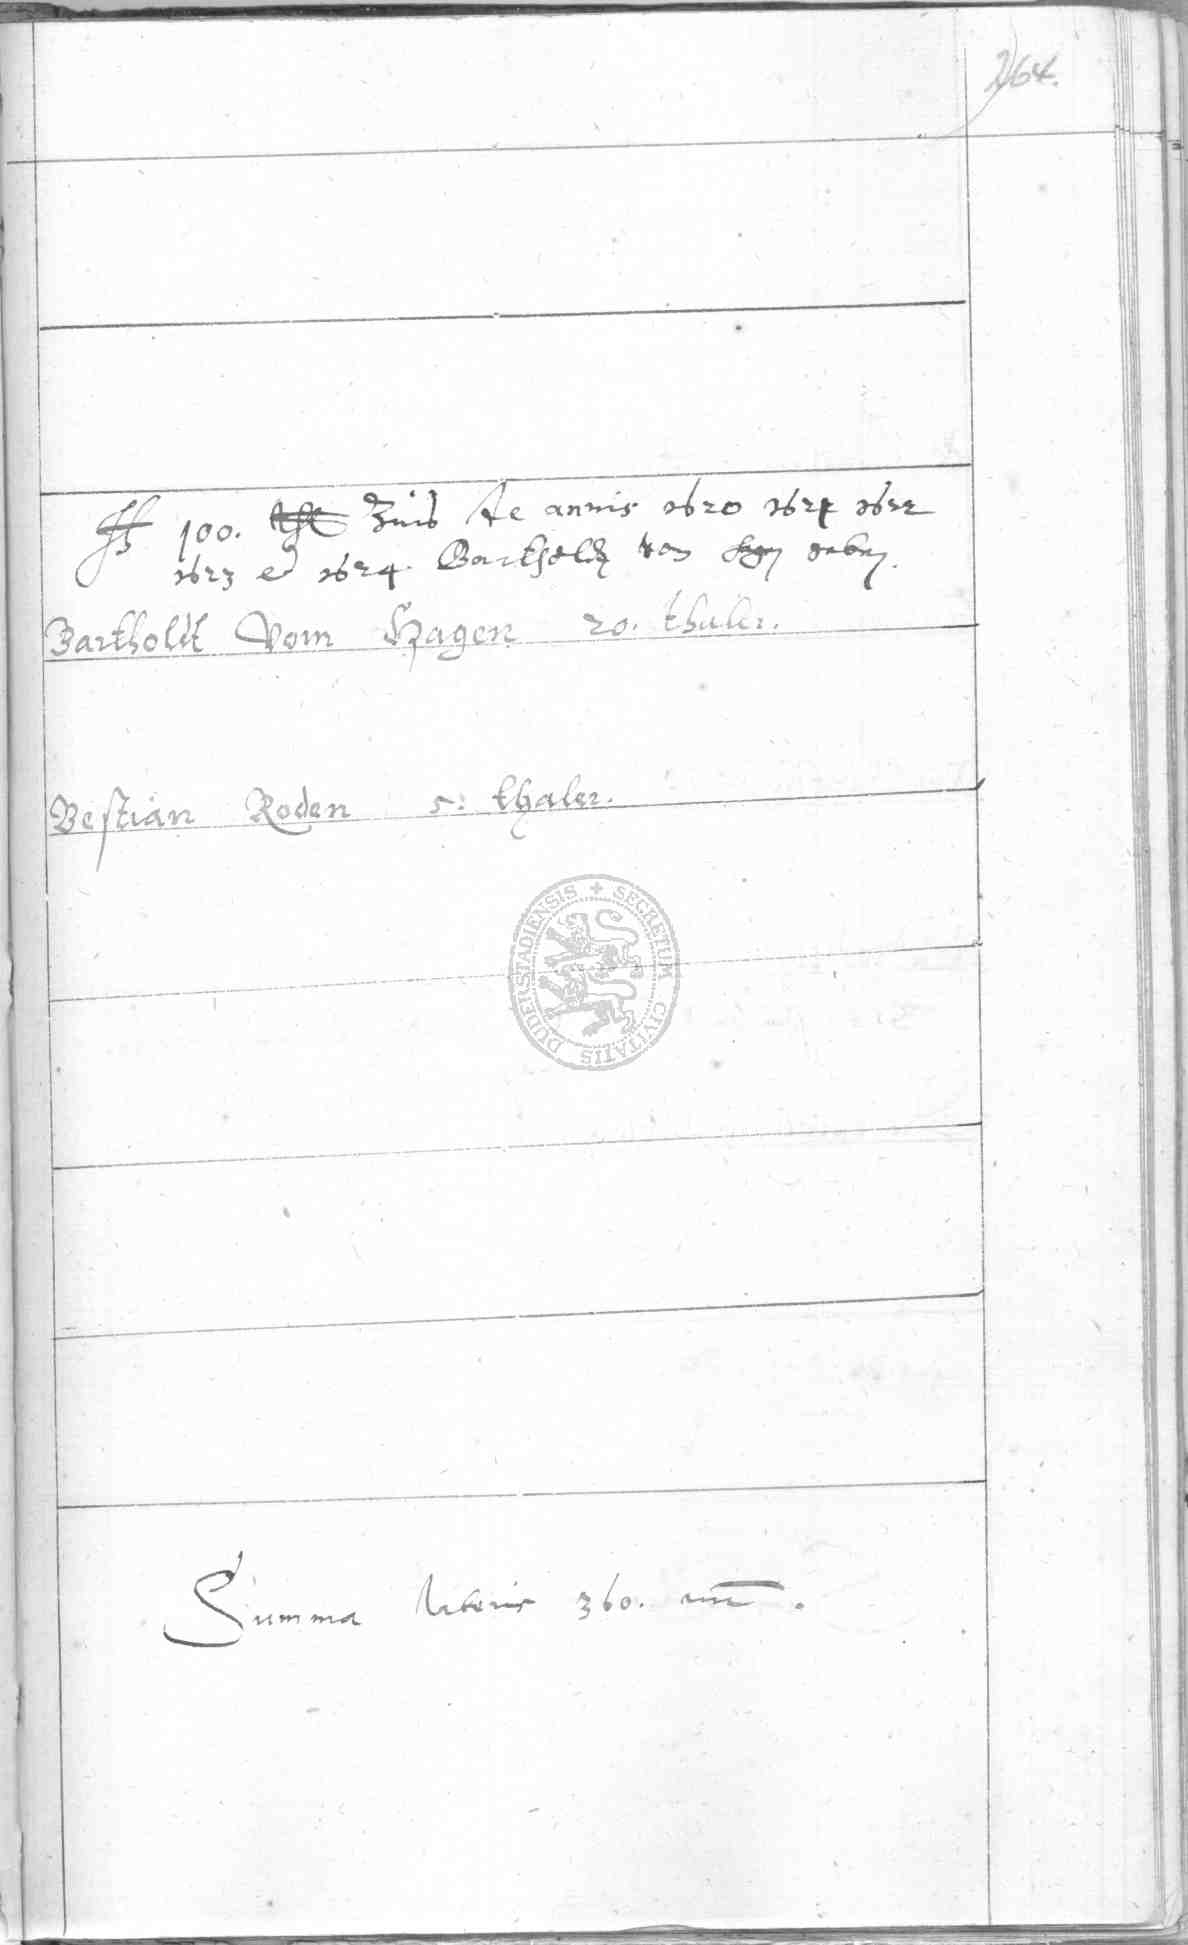 264.
100. Zins de annis 1620 1621 1622
1623 et 1624. Barthold von Hagen geben.
Bartholdt Vom Hagen 20. thaler.
Bestian Roden 5: thaler.
SECRETUM CIVITATIS DUDERSTADIENSIS
Summa lateris 360.